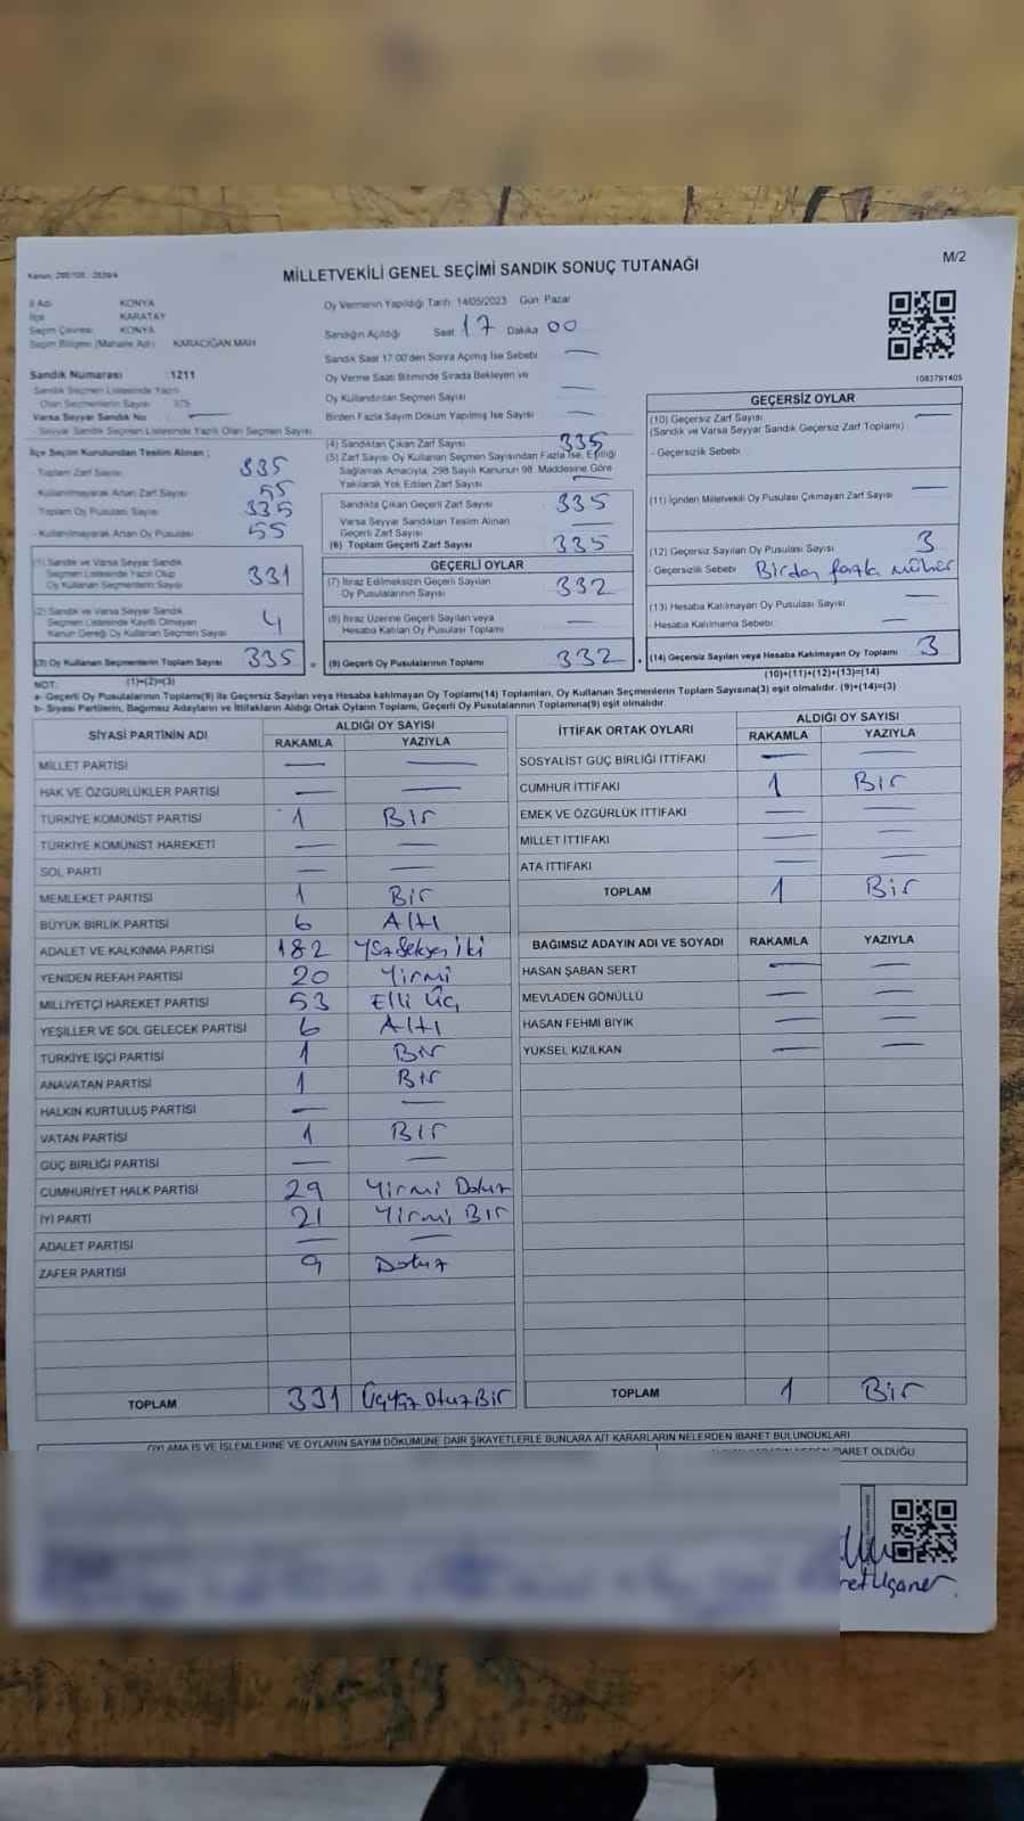 M/2
MİLLETVEKİLİ GENEL SEÇİMİ SANDIK SONUÇ TUTANAĞI
İl Adı KONYA
İlçe KARATAY
Seçim Çevresi KONYA
Seçim Bölgesi (Mahalle Adı) KARACIĞAN MAH
Sandık Numarası :1211
Sandık Seçmen Listesinde Yazılı
Olan Seçmenlerin Sayısı 375
Varsa Seyyar Sandık No —
Seyyar Sandık Seçmen Listesinde Yazılı Olan Seçmen Sayısı
İlçe Seçim Kurulundan Teslim Alınan ;
Toplam Zarf Sayısı 335
Kullanılmayarak Artan Zarf Sayısı 55
Toplam Oy Pusulası Sayısı 335
Kullanılmayarak Artan Oy Pusulası 55
(1) Sandık ve Varsa Seyyar Sandık
Seçmen Listesinde Yazılı Olup
Oy Kullanan Seçmenlerin Sayısı 331
(2) Sandık ve Varsa Seyyar Sandık
Seçmen Listesinde Kayıtlı Olmayan
Kanun Gereği Oy Kullanan Seçmen Sayısı 4
(3) Oy Kullanan Seçmenlerin Toplam Sayısı 335
(1)+(2)=(3)
Oy Vermenin Yapıldığı Tarih: 14/05/2023 Gün: Pazar
Sandığın Açıldığı Saat 17 Dakika 00
Sandık Saat 17:00'den Sonra Açılmış İse Sebebi —
Oy Verme Saati Bitiminde Sırada Bekleyen ve
Oy Kullandırılan Seçmen Sayısı —
Birden Fazla Sayım Döküm Yapılmış İse Sayısı —
(4) Sandıktan Çıkan Zarf Sayısı 335
(5) Zarf Sayısı Oy Kullanan Seçmen Sayısından Fazla İse, Eşitliği
Sağlamak Amacıyla, 298 Sayılı Kanunun 98. Maddesine Göre
Yakılarak Yok Edilen Zarf Sayısı —
Sandıkta Çıkan Geçerli Zarf Sayısı 335
Varsa Seyyar Sandıktan Teslim Alınan
Geçerli Zarf Sayısı —
(6) Toplam Geçerli Zarf Sayısı 335
GEÇERLİ OYLAR
(7) İtiraz Edilmeksizin Geçerli Sayılan
Oy Pusulalarının Sayısı 332
(8) İtiraz Üzerine Geçerli Sayılan veya
Hesaba Katılan Oy Pusulası Toplamı —
(9) Geçerli Oy Pusulalarının Toplamı 332
1083791405
GEÇERSİZ OYLAR
(10) Geçersiz Zarf Sayısı —
(Sandık ve Varsa Seyyar Sandık Geçersiz Zarf Toplamı)
- Geçersizlik Sebebi
(11) İçinden Milletvekili Oy Pusulası Çıkmayan Zarf Sayısı —
(12) Geçersiz Sayılan Oy Pusulası Sayısı 3
- Geçersizlik Sebebi Birden fazla mühür
(13) Hesaba Katılmayan Oy Pusulası Sayısı —
- Hesaba Katılmama Sebebi —
(14) Geçersiz Sayılan veya Hesaba Katılmayan Oy Toplamı 3
(10)+(11)+(12)+(13)=(14)
NOT:
a- Geçerli Oy Pusulalarının Toplamı(9) ile Geçersiz Sayılan veya Hesaba katılmayan Oy Toplamı(14) Toplamları, Oy Kullanan Seçmenlerin Toplam Sayısına(3) eşit olmalıdır. (9)+(14)=(3)
b- Siyasi Partilerin, Bağımsız Adayların ve İttifakların Aldığı Ortak Oyların Toplamı, Geçerli Oy Pusulalarının Toplamına(9) eşit olmalıdır.
SİYASİ PARTİNİN ADI ALDIĞI OY SAYISI
RAKAMLA YAZIYLA
MİLLET PARTİSİ — —
HAK VE ÖZGÜRLÜKLER PARTİSİ — —
TÜRKİYE KOMÜNİST PARTİSİ 1 Bir
TÜRKİYE KOMÜNİST HAREKETİ — —
SOL PARTİ — —
MEMLEKET PARTİSİ 1 Bir
BÜYÜK BİRLİK PARTİSİ 6 Altı
ADALET VE KALKINMA PARTİSİ 182 Yüz Seksen iki
YENİDEN REFAH PARTİSİ 20 Yirmi
MİLLİYETÇİ HAREKET PARTİSİ 53 Elli Üç
YEŞİLLER VE SOL GELECEK PARTİSİ 6 Altı
TÜRKİYE İŞÇİ PARTİSİ 1 Bir
ANAVATAN PARTİSİ 1 Bir
HALKIN KURTULUŞ PARTİSİ — —
VATAN PARTİSİ 1 Bir
GÜÇ BİRLİĞİ PARTİSİ — —
CUMHURİYET HALK PARTİSİ 29 Yirmi Dokuz
İYİ PARTİ 21 Yirmi Bir
ADALET PARTİSİ — —
ZAFER PARTİSİ 9 Dokuz
TOPLAM 331 Üçyüz Otuz Bir
İTTİFAK ORTAK OYLARI ALDIĞI OY SAYISI
RAKAMLA YAZIYLA
SOSYALİST GÜÇ BİRLİĞİ İTTİFAKI — —
CUMHUR İTTİFAKI 1 Bir
EMEK VE ÖZGÜRLÜK İTTİFAKI — —
MİLLET İTTİFAKI — —
ATA İTTİFAKI — —
TOPLAM 1 Bir
BAĞIMSIZ ADAYIN ADI VE SOYADI RAKAMLA YAZIYLA
HASAN ŞABAN SERT — —
MEVLADEN GÖNÜLLÜ — —
HASAN FEHMİ BIYIK — —
YÜKSEL KIZILKAN — —
TOPLAM 1 Bir
OYLAMA İŞ VE İŞLEMLERİNE VE OYLARIN SAYIM DÖKÜMÜNE DAİR ŞİKAYETLERLE BUNLARA AİT KARARLARIN NELERDEN İBARET BULUNDUKLARI
İBARET OLDUĞU